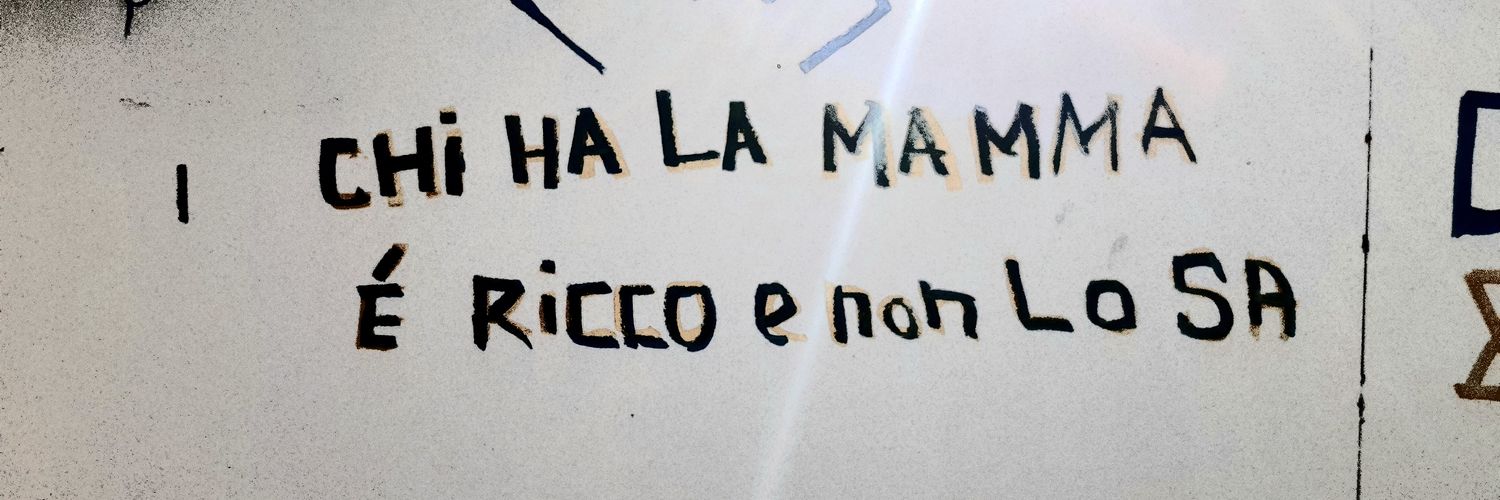 CHi HA LA MAMMA
É RiCCO e non LO SA